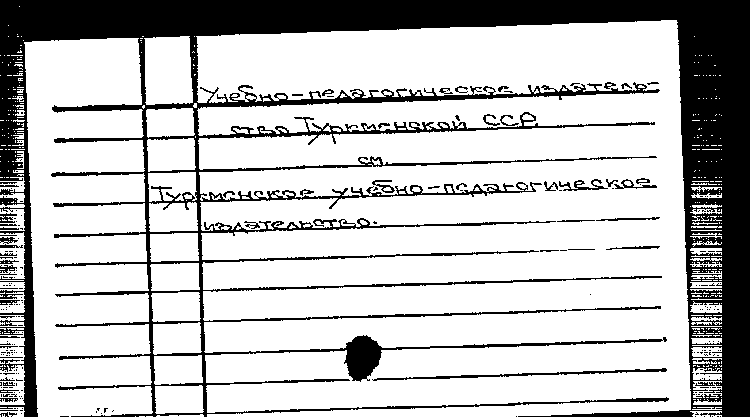 Учебно-педагогическое издатель-
ство Туркменской ССР
см.
Туркменское учебно-педагогическое
издательство.